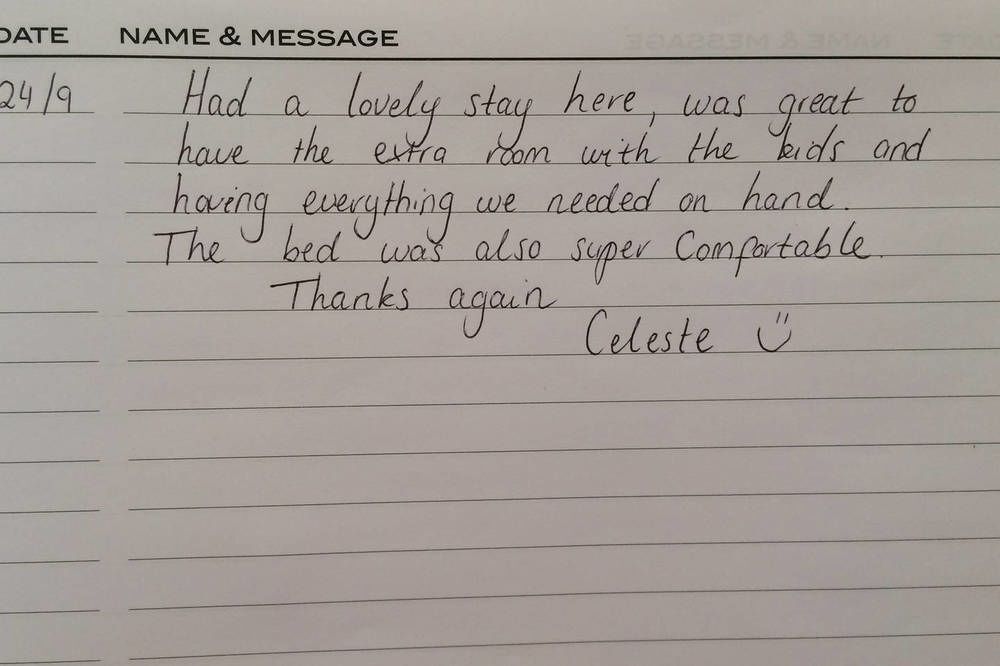 DATE NAME & MESSAGE
24/9 Had a lovely stay here, was great to
have the extra room with the kids and
having everything we needed on hand.
The bed was also super Comfortable.
Thanks again
Celeste